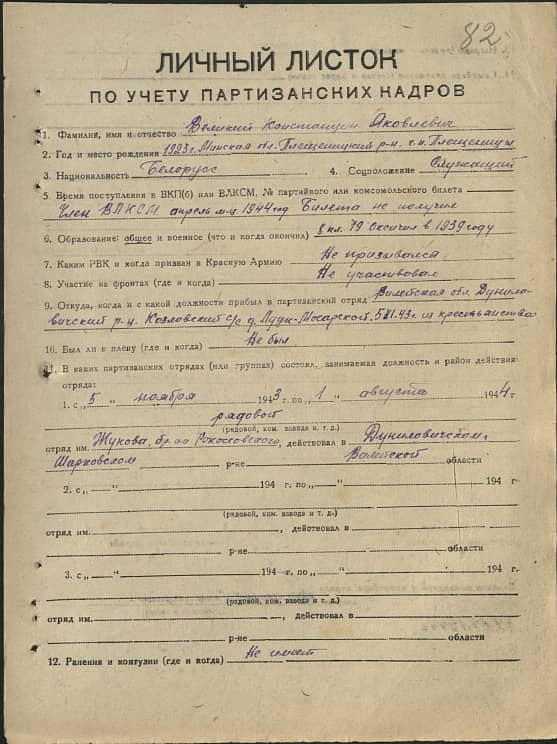 82
ЛИЧНЫЙ ЛИСТОК
ПО УЧЕТУ ПАРТИЗАНСКИХ КАДРОВ
1. Фамилия, имя и отчество Великий Константин Яковлевич
2. Год и место рождения 1923 г. Минская обл. Плещеницкий р-н. г.п. Плещеницы
3. Национальность Белорусс 4. Соцположение Служащий
5. Время поступления в ВКП(б) или ВЛКСМ, № партийного или комсомольского билета
Член ВЛКСМ апрель м-ц 1944 год Билета не получил
6. Образование: общее и военное (что и когда окончил) 8 кл. Окончил в 1939 году
7. Каким РВК и когда призван в Красную Армию Не призывался
8. Участие на фронтах (где и когда) Не участвовал
9. Откуда, когда и с какой должности прибыл в партизанский отряд Вилейская обл. Дунило-
вичский р-н. Козловский с/с д. 5.XI.43 г. из крестьянства
10. Был ли в плену (где и когда) Не был.
11. В каких партизанских отрядах (или группах) состоял, занимаемая должность и район действия
отряда:
1. с „5“ ноября 1943 г. по „1“ августа 1944 г.
рядовой
(рядовой, ком. взвода и т. д.)
отряд им. Жукова, бр-да Рокоссовского, действовал в Дуниловичском,
Шарковском р-не Вилейской области
2. с „ “ 194 г. по „ “ 194 г.
(рядовой, ком. взвода и т. д.)
отряд им. , действовал в
р-не области
3. с „ “ 194 г. по „ “ 194 г.
(рядовой, ком. взвода и т. д.)
отряд им. , действовал в
р-не области
12. Ранения и контузии (где и когда) Не имеет